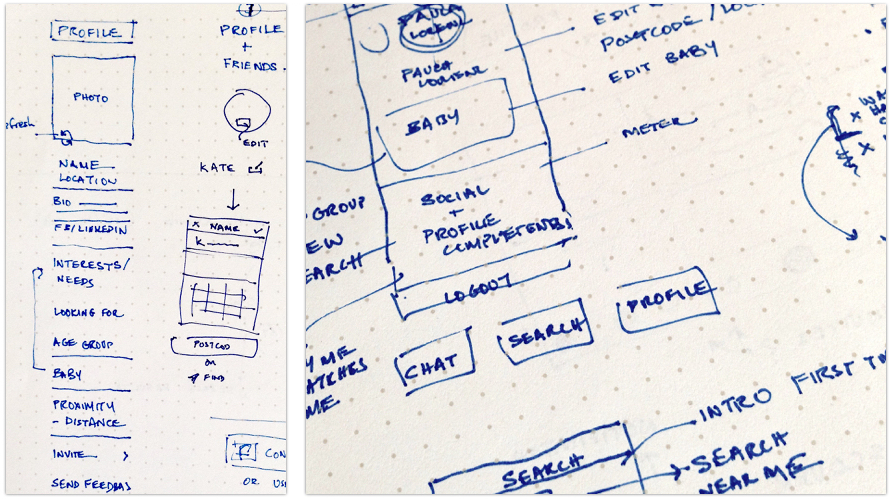 PROFILE
PHOTO
efresh
NAME
LOCATION
BIO
FB/LINKEDIN
INTERESTS/
NEEDS
LOOKING FOR
AGE GROUP
BABY
PROXIMITY
- DISTANCE
INVITE >
SEND FEEDBAS
PROFILE
+
FRIENDS.
EDIT
KATE
X NAME ✓
K
POSTCOD
OR
FIND
CON
OR US
PAULA
LORIENE
PAULA
LORIENE
BABY
SOCIAL
+
PROFILE
COMPLETENESS
LOGOUT
EDIT
POSTCODE/LO
EDIT BABY
METER
GROUP
EW
EARCH
Y ME
ATCHES
ME
CHAT
SEARCH
PROFILE
SEARCH
INTRO FIRST T
SEARCH
NEAR ME
X WA
HA
X